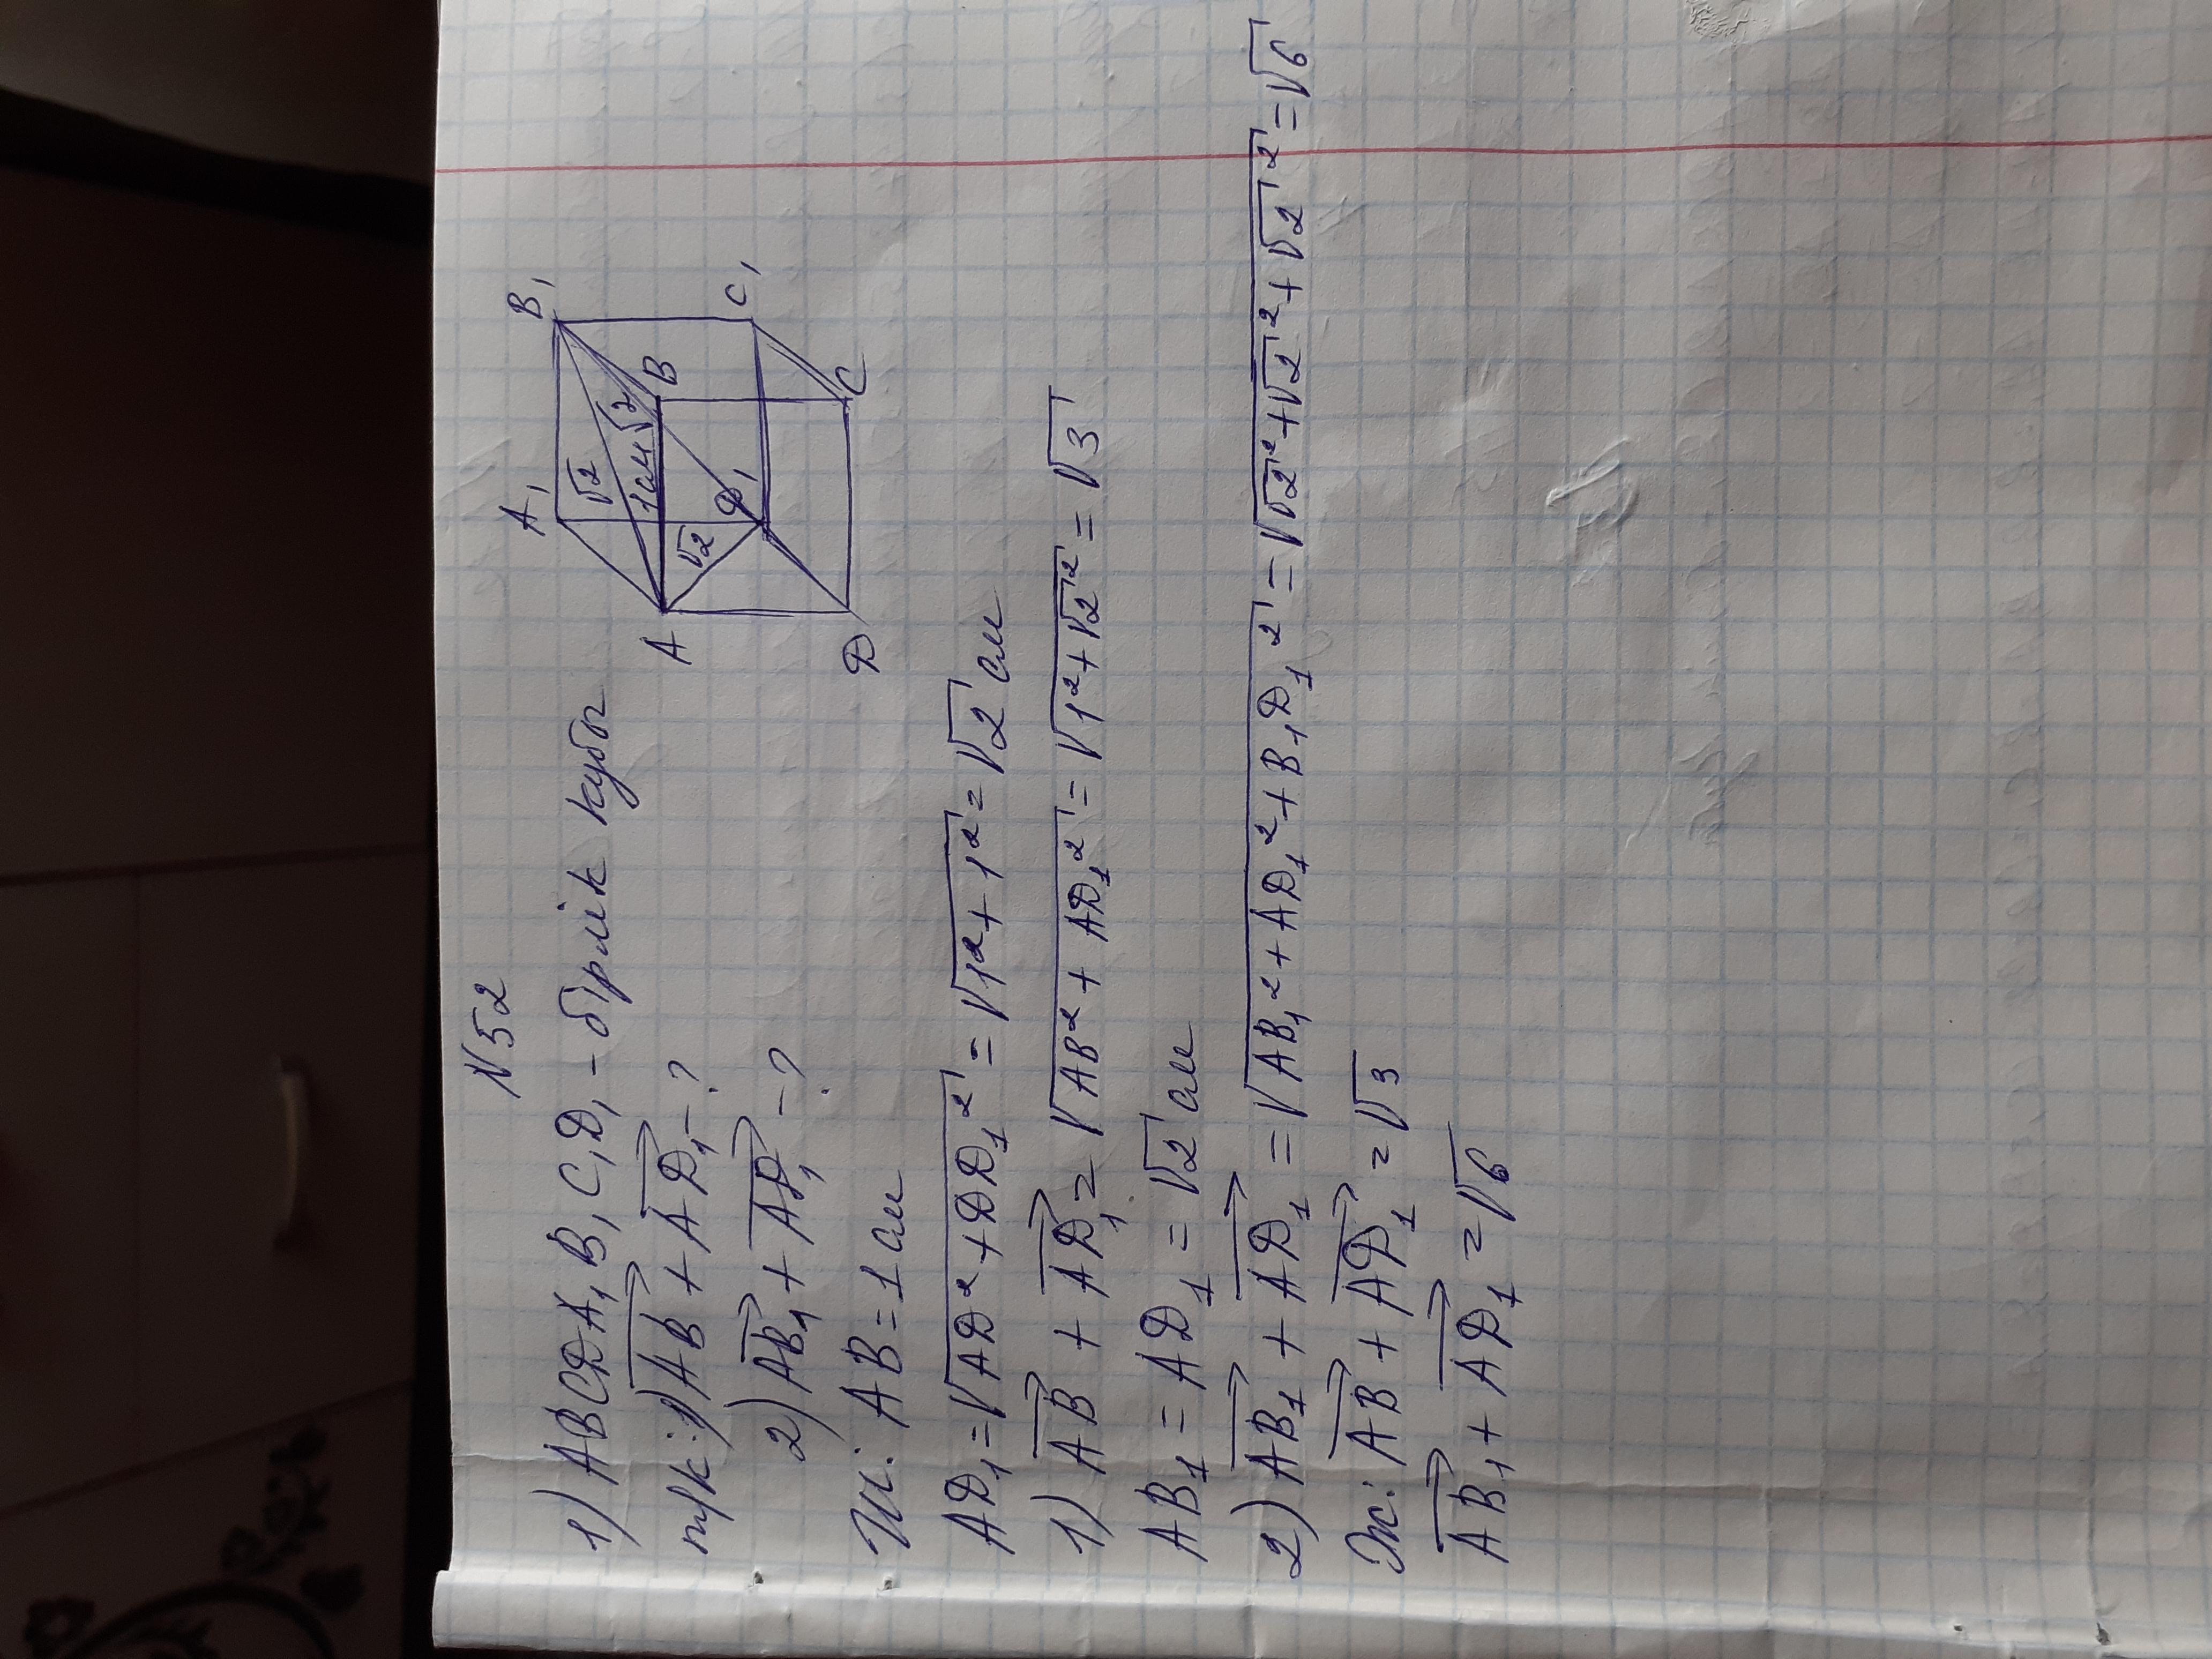 N52
1) ABCDA₁B₁C₁D₁ - бірлік кубы
т/к: 1) AB⃗ + AD₁⃗ - ?
2) AB₁⃗ + AD₁⃗ - ?
Ш: AB = 1 см
AD₁ = √(AD² + DD₁²) = √(1² + 1²) = √2 см
1) AB⃗ + AD₁⃗ = √(AB² + AD₁²) = √(1² + √2²) = √3
AB₁ = AD₁ = √2 см
2) AB₁⃗ + AD₁⃗ = √(AB₁² + AD₁² + B₁D₁²) = √(√2² + √2² + √2²) = √6
Ж: AB⃗ + AD₁⃗ = √3
AB₁⃗ + AD₁⃗ = √6
A₁ B₁
√2
1 см √2
A B
√2
D₁ C₁
D C